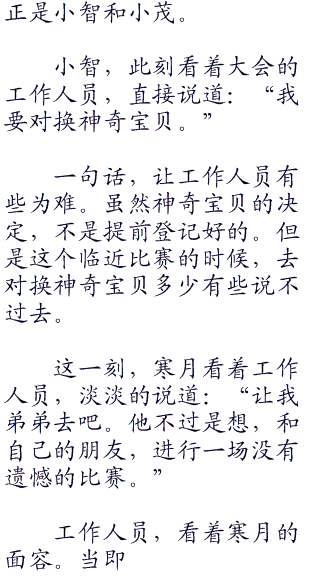 正是小智和小茂。
小智，此刻看着大会的
工作人员，直接说道：“我
要对换神奇宝贝。”
一句话，让工作人员有
些为难。虽然神奇宝贝的决
定，不是提前登记好的。但
是这个临近比赛的时候，去
对换神奇宝贝多少有些说不
过去。
这一刻，寒月看着工作
人员，淡淡的说道：“让我
弟弟去吧。他不过是想，和
自己的朋友，进行一场没有
遗憾的比赛。”
工作人员，看着寒月的
面容。当即